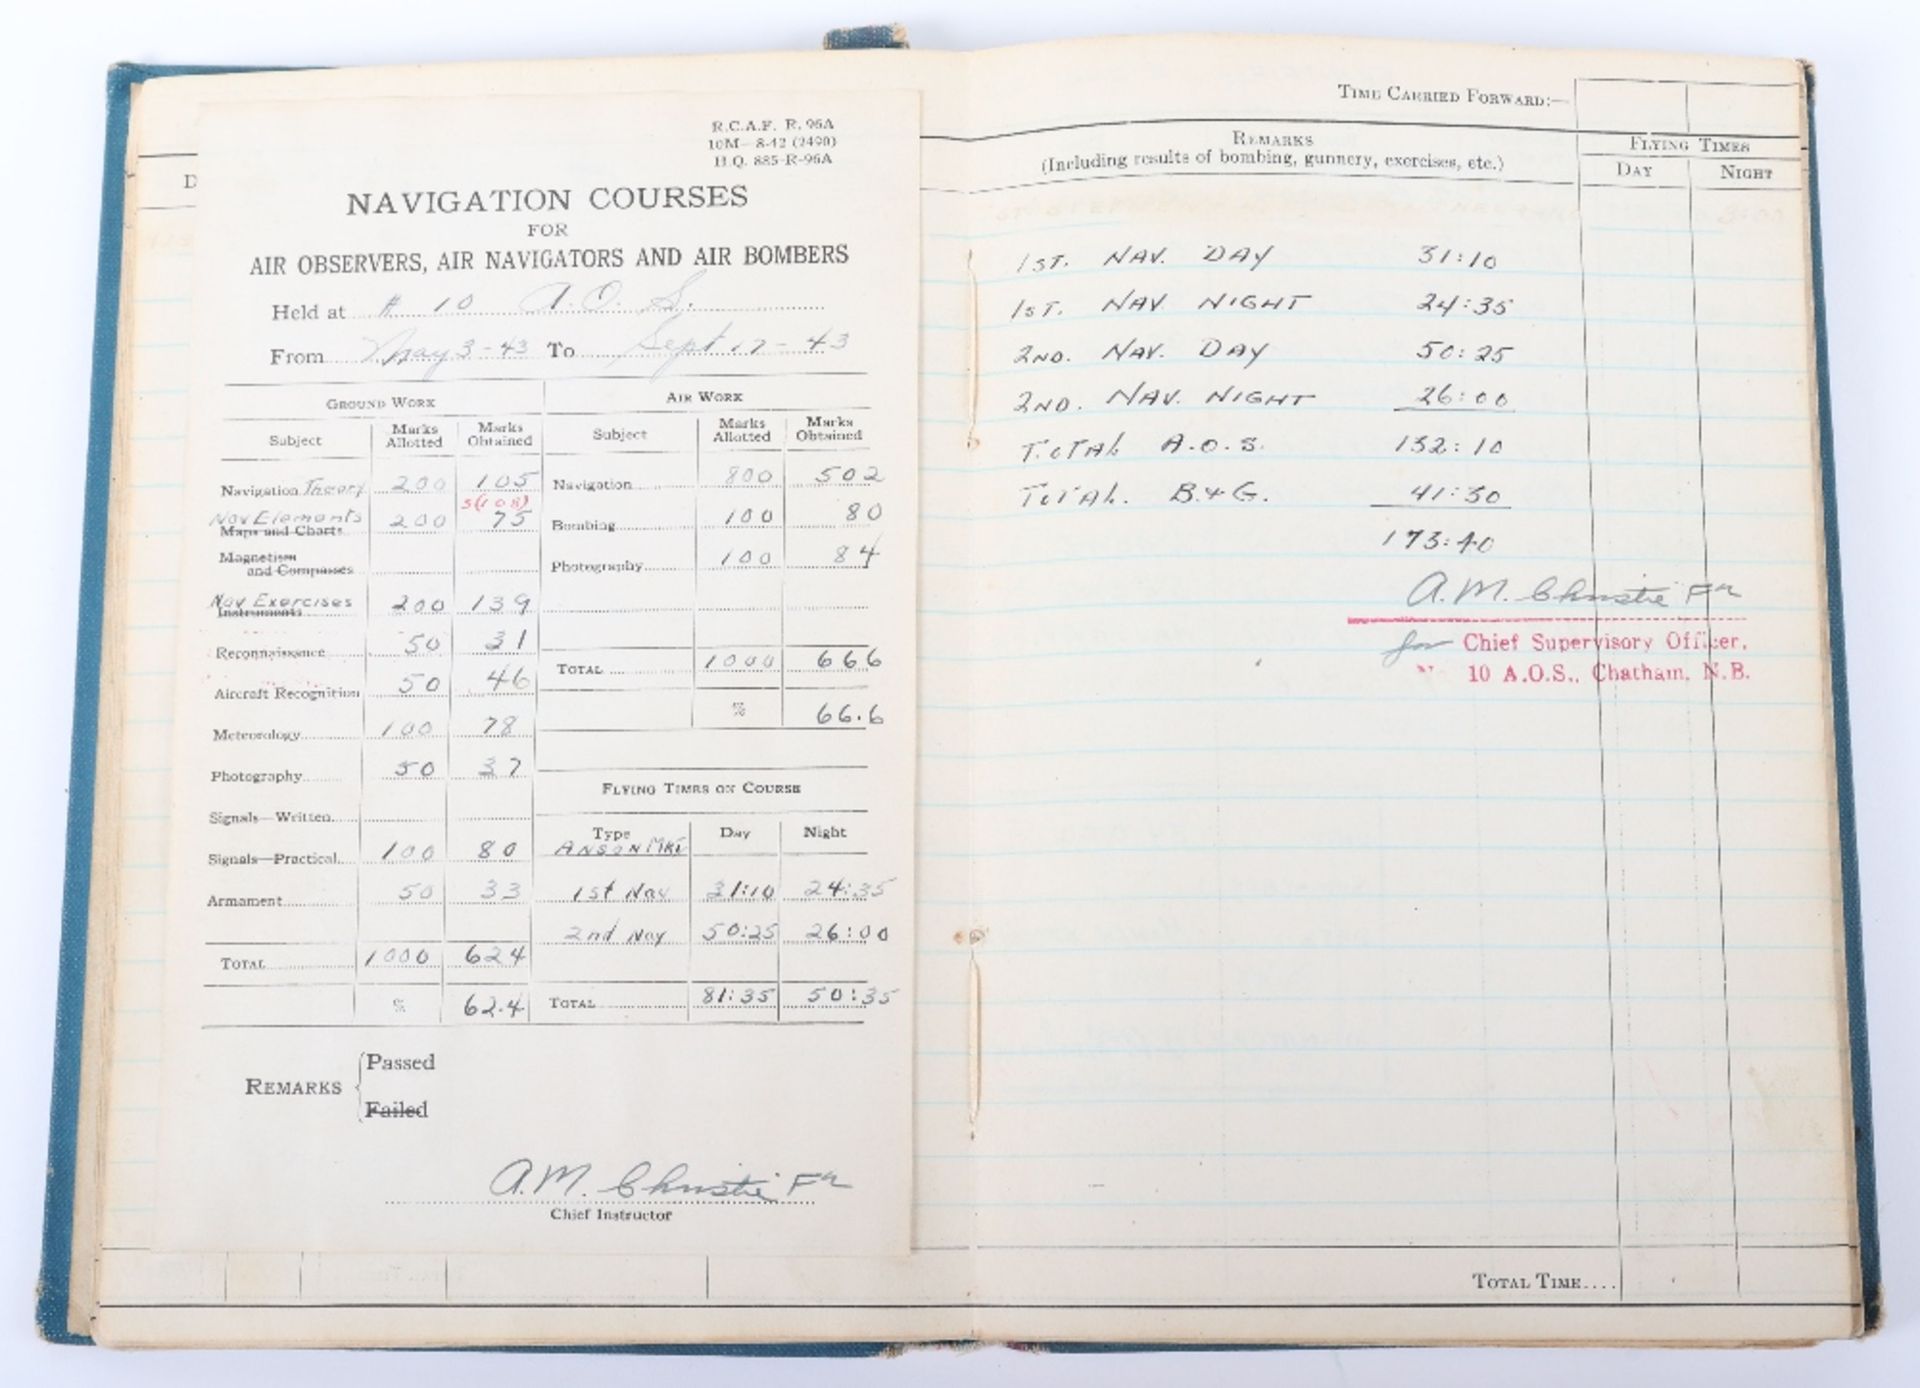 R.C.A.F. R. 96A
10M—8-42 (2490)
H.Q. 885-R-96A
NAVIGATION COURSES
FOR
AIR OBSERVERS, AIR NAVIGATORS AND AIR BOMBERS
Held at # 10 A. O. S.
From May 3 - 43 To Sept 17 - 43
GROUND WORK AIR WORK
Subject Marks Allotted Marks Obtained Subject Marks Allotted Marks Obtained
Navigation Theory 200 105 Navigation 800 502
S(108)
Nav Elements 200 75 Bombing 100 80
Maps and Charts
Magnetism Photography 100 84
and Compasses
Nav Exercises 200 139
Instruments
Reconnaissance 50 31
Aircraft Recognition 50 46 TOTAL 1000 666
Meteorology 100 78 % 66.6
Photography 50 37
Signals—Written FLYING TIMES ON COURSE
Signals—Practical 100 80 Type Day Night
ANSON MKI
Armament 50 33 1st Nav 31:10 24:35
2nd Nav 50:25 26:00
TOTAL 1000 624
% 62.4 TOTAL 81:35 50:35
REMARKS Passed
Failed
A.M. Christie
Chief Instructor
TIME CARRIED FORWARD:—
REMARKS
(Including results of bombing, gunnery, exercises, etc.)
FLYING TIMES
DAY NIGHT
1ST. NAV. DAY 31:10
1ST. NAV NIGHT 24:35
2ND. NAV. DAY 50:25
2ND. NAV. NIGHT 26:00
TOTAL A.O.S. 132:10
TOTAL. B&G. 41:30
173:40
A.M. Christie
for Chief Supervisory Officer,
10 A.O.S., Chatham, N.B.
TOTAL TIME....